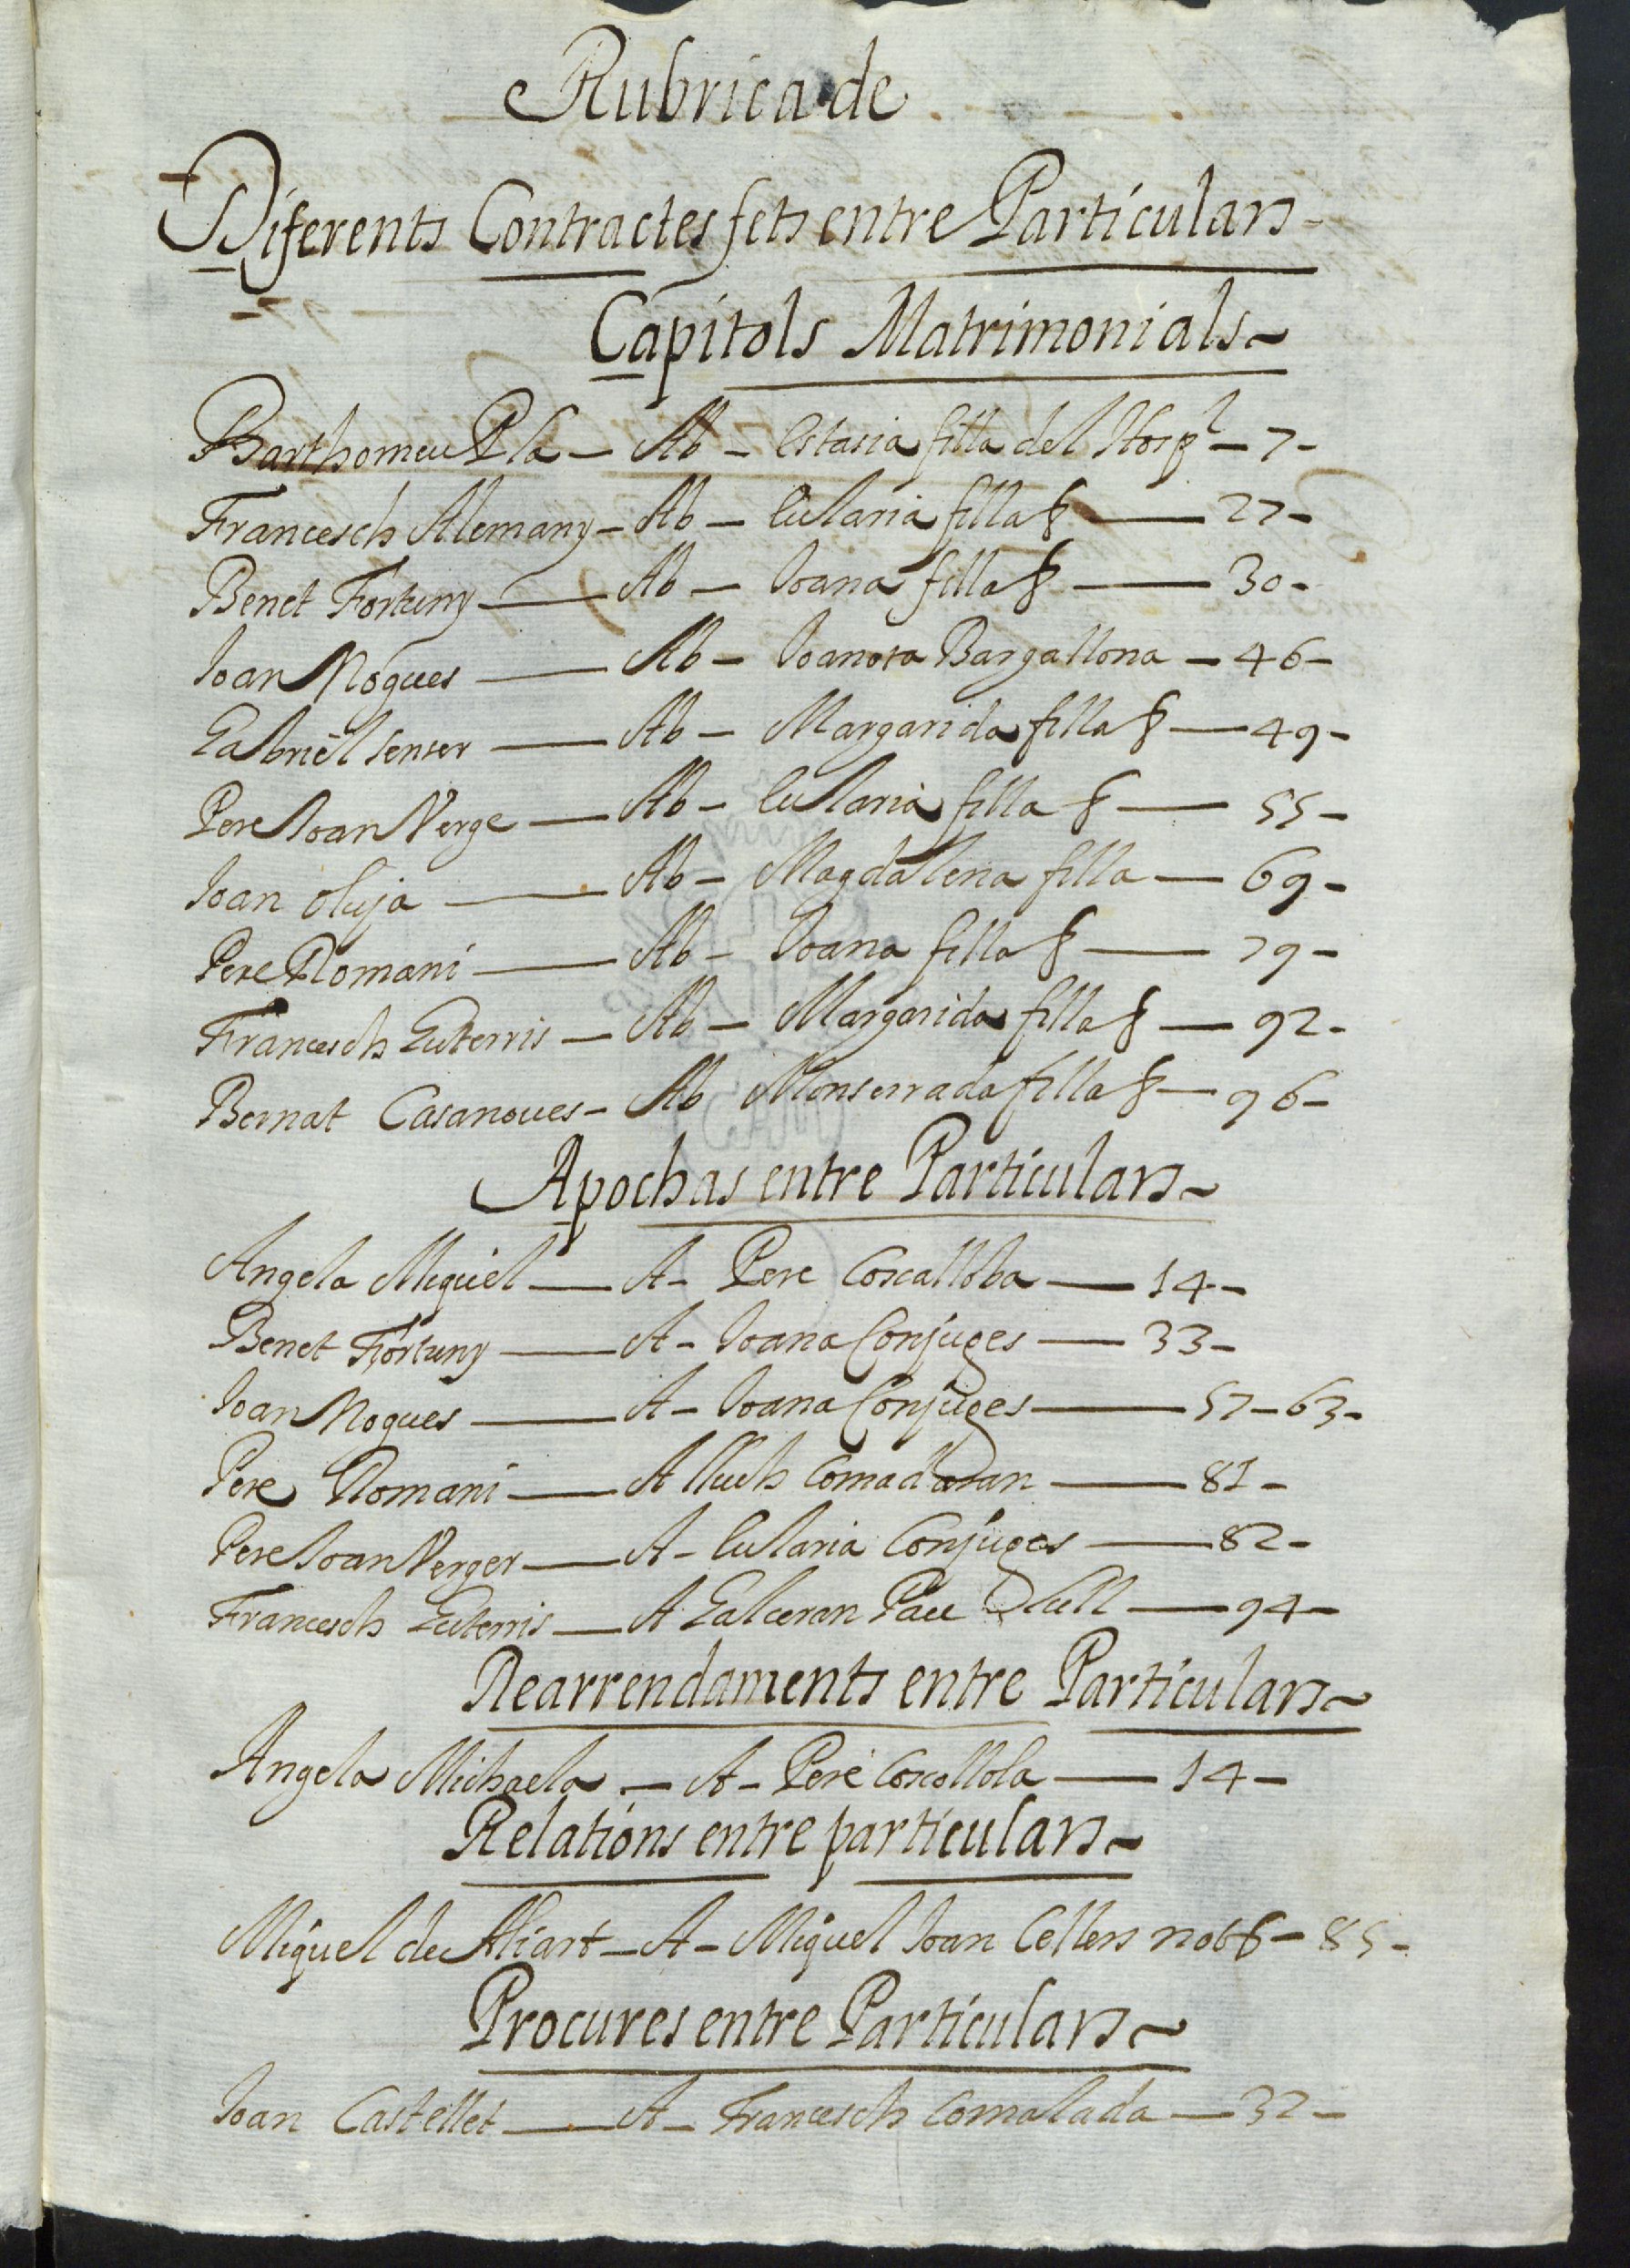 Rubrica de
Diferents Contractes fets entre Particulars-
Capitols Matrimonials~
Barthomeu Pla - Ab - Estasia filla del Hospl - 7-
Francesch Alemany - Ab - Eularia filla — 27-
Benet Fortuny — Ab — Joana filla — 30-
Joan Nogues — Ab - Joanota Bargallona - 46-
Gabriel senser — Ab - Margarida filla — 49-
Pere Joan Verge — Ab - Eularia filla — 55-
Joan oluja — Ab - Magdalena filla — 69-
Pere Romani — Ab - Joana filla — 79-
Francesch Guterris — Ab - Margarida filla — 92-
Bernat Casanoves - Ab Monserrada filla — 96-
Apochas entre Particulars~
Angela Miquel — A - Pere Coscalloba — 14-
Benet Fortuny — A - Joana Conjuges — 33-
Joan Nogues — A - Joana Conjuges — 57-63-
Pere Romani — A lluch — 81-
Pere Joan Verger — A - Eularia Conjuges — 82-
Francesch Guterris — A Galceran Pau — 94-
Rearrendaments entre Particulars~
Angela Michaela — A - Pere Coscollola — 14-
Relations entre particulars~
Miquel de Aliart - A - Miquel Joan Cellers - 85-
Procures entre Particulars~
Joan Castellet — A - Francesch Comalada — 32-